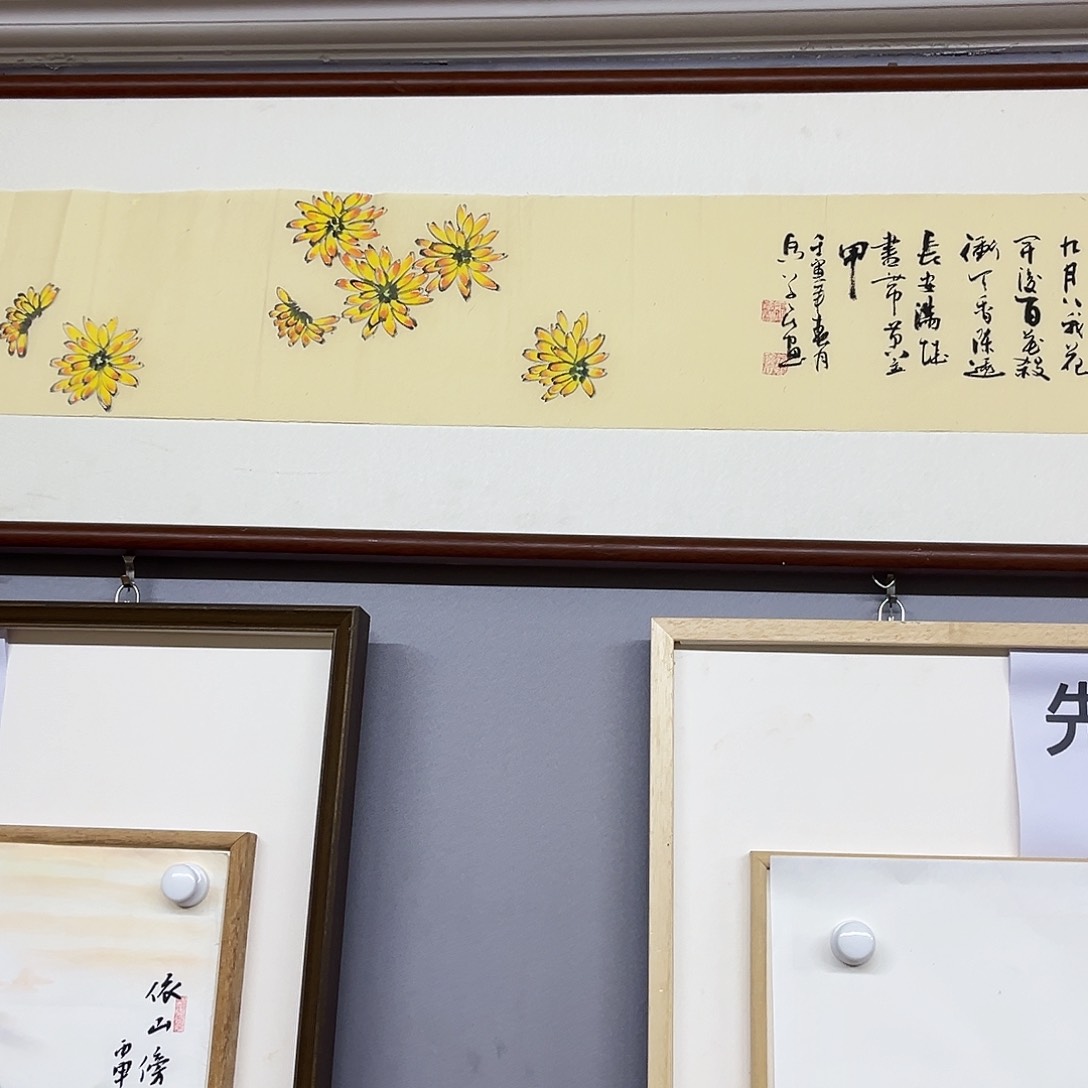 九月八我花
开後百花殺
衝天香陣透
長安滿城
盡帶黄金
甲
壬寅年春月
依山傍